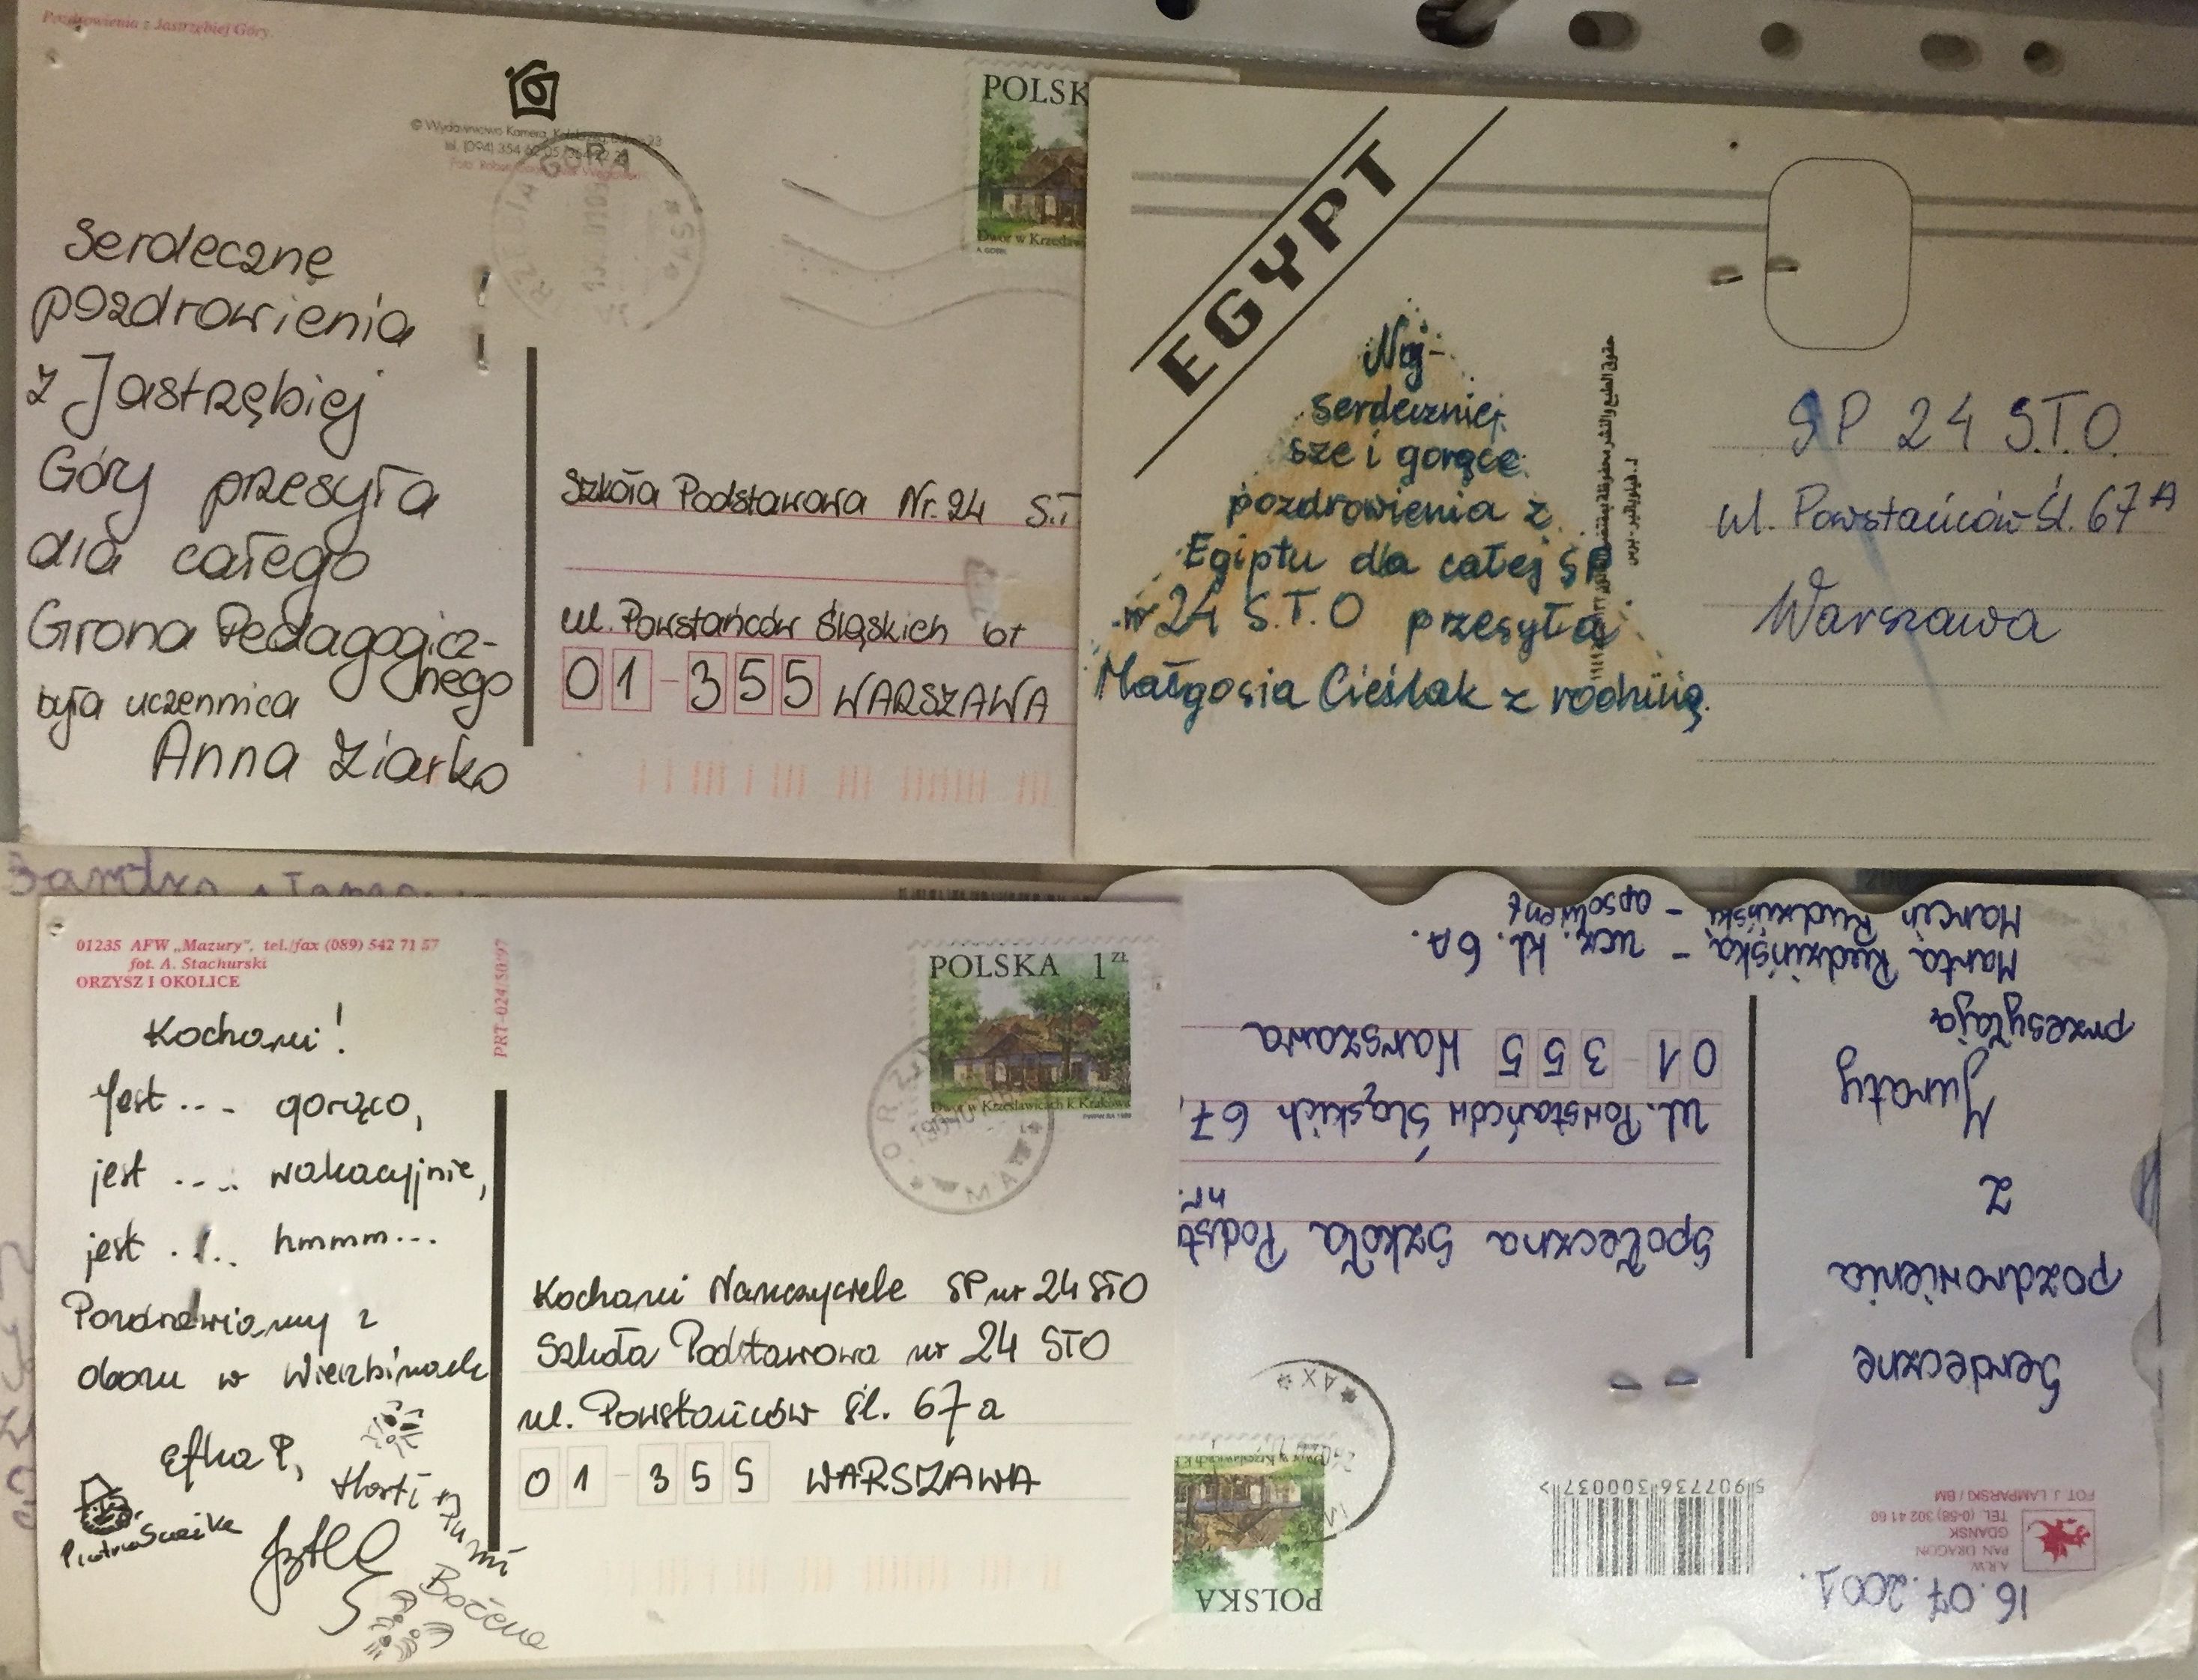 Pozdrowienia z Jastrzębiej Góry
© Wydawnictwo Kamera, Kołobrzeg,
tel. (094) 354
GÓRA
Serdeczne
pozdrowienia
z Jastrzębiej
Góry przesyła
dla całego
Grona Pedagogicz-
nego
była uczennica
Anna Ziarko
POLSK
Dwór w Krzesław
Szkoła Podstawowa Nr. 24 S.T
ul. Powstańców Śląskich 67
01-355 WARSZAWA
EGYPT
Naj-
serdeczniej-
sze i gorące
pozdrowienia z
Egiptu dla całej SP
nr 24 S.T.O przesyła
Małgosia Cieślak z rodziną.
حقوق الطبع والنشر محفوظة
SP 24 S.T.O.
ul. Powstańców Śl. 67A
Warszawa
01235 AFW „Mazury”, tel./fax (089) 542 71 57
fot. A. Stachurski
ORZYSZ I OKOLICE
PRT-024/50/97
Kochani!
Jest ... gorąco,
jest .... wakacyjnie,
jest .... hmmm...
Pozdrawiamy z
obozu w Wierzbinach
Efka P,
Bożena
POLSKA 1 ZŁ
Dwór w Krzesławicach k. Krakowa
Kochani Nauczyciele SP nr 24 STO
Szkoła Podstawowa nr 24 STO
ul. Powstańców Śl. 67a
01-355 WARSZAWA
16.07.2001.
A.R.W.
PAN DRAGON
GDAŃSK
TEL. (0-58) 302 41 60
FOT J. LAMPARSKI / BM
5907736300037>
POLSKA
Serdeczne
pozdrowienia
z
Juraty
przesyłają
Marta Rudzińska - ucz. kl. 6A.
Marcin Rudziński - absolwent
Społeczna Szkoła Podst
nr.
ul. Powstańców Śląskich 67,
01-355 Warszawa